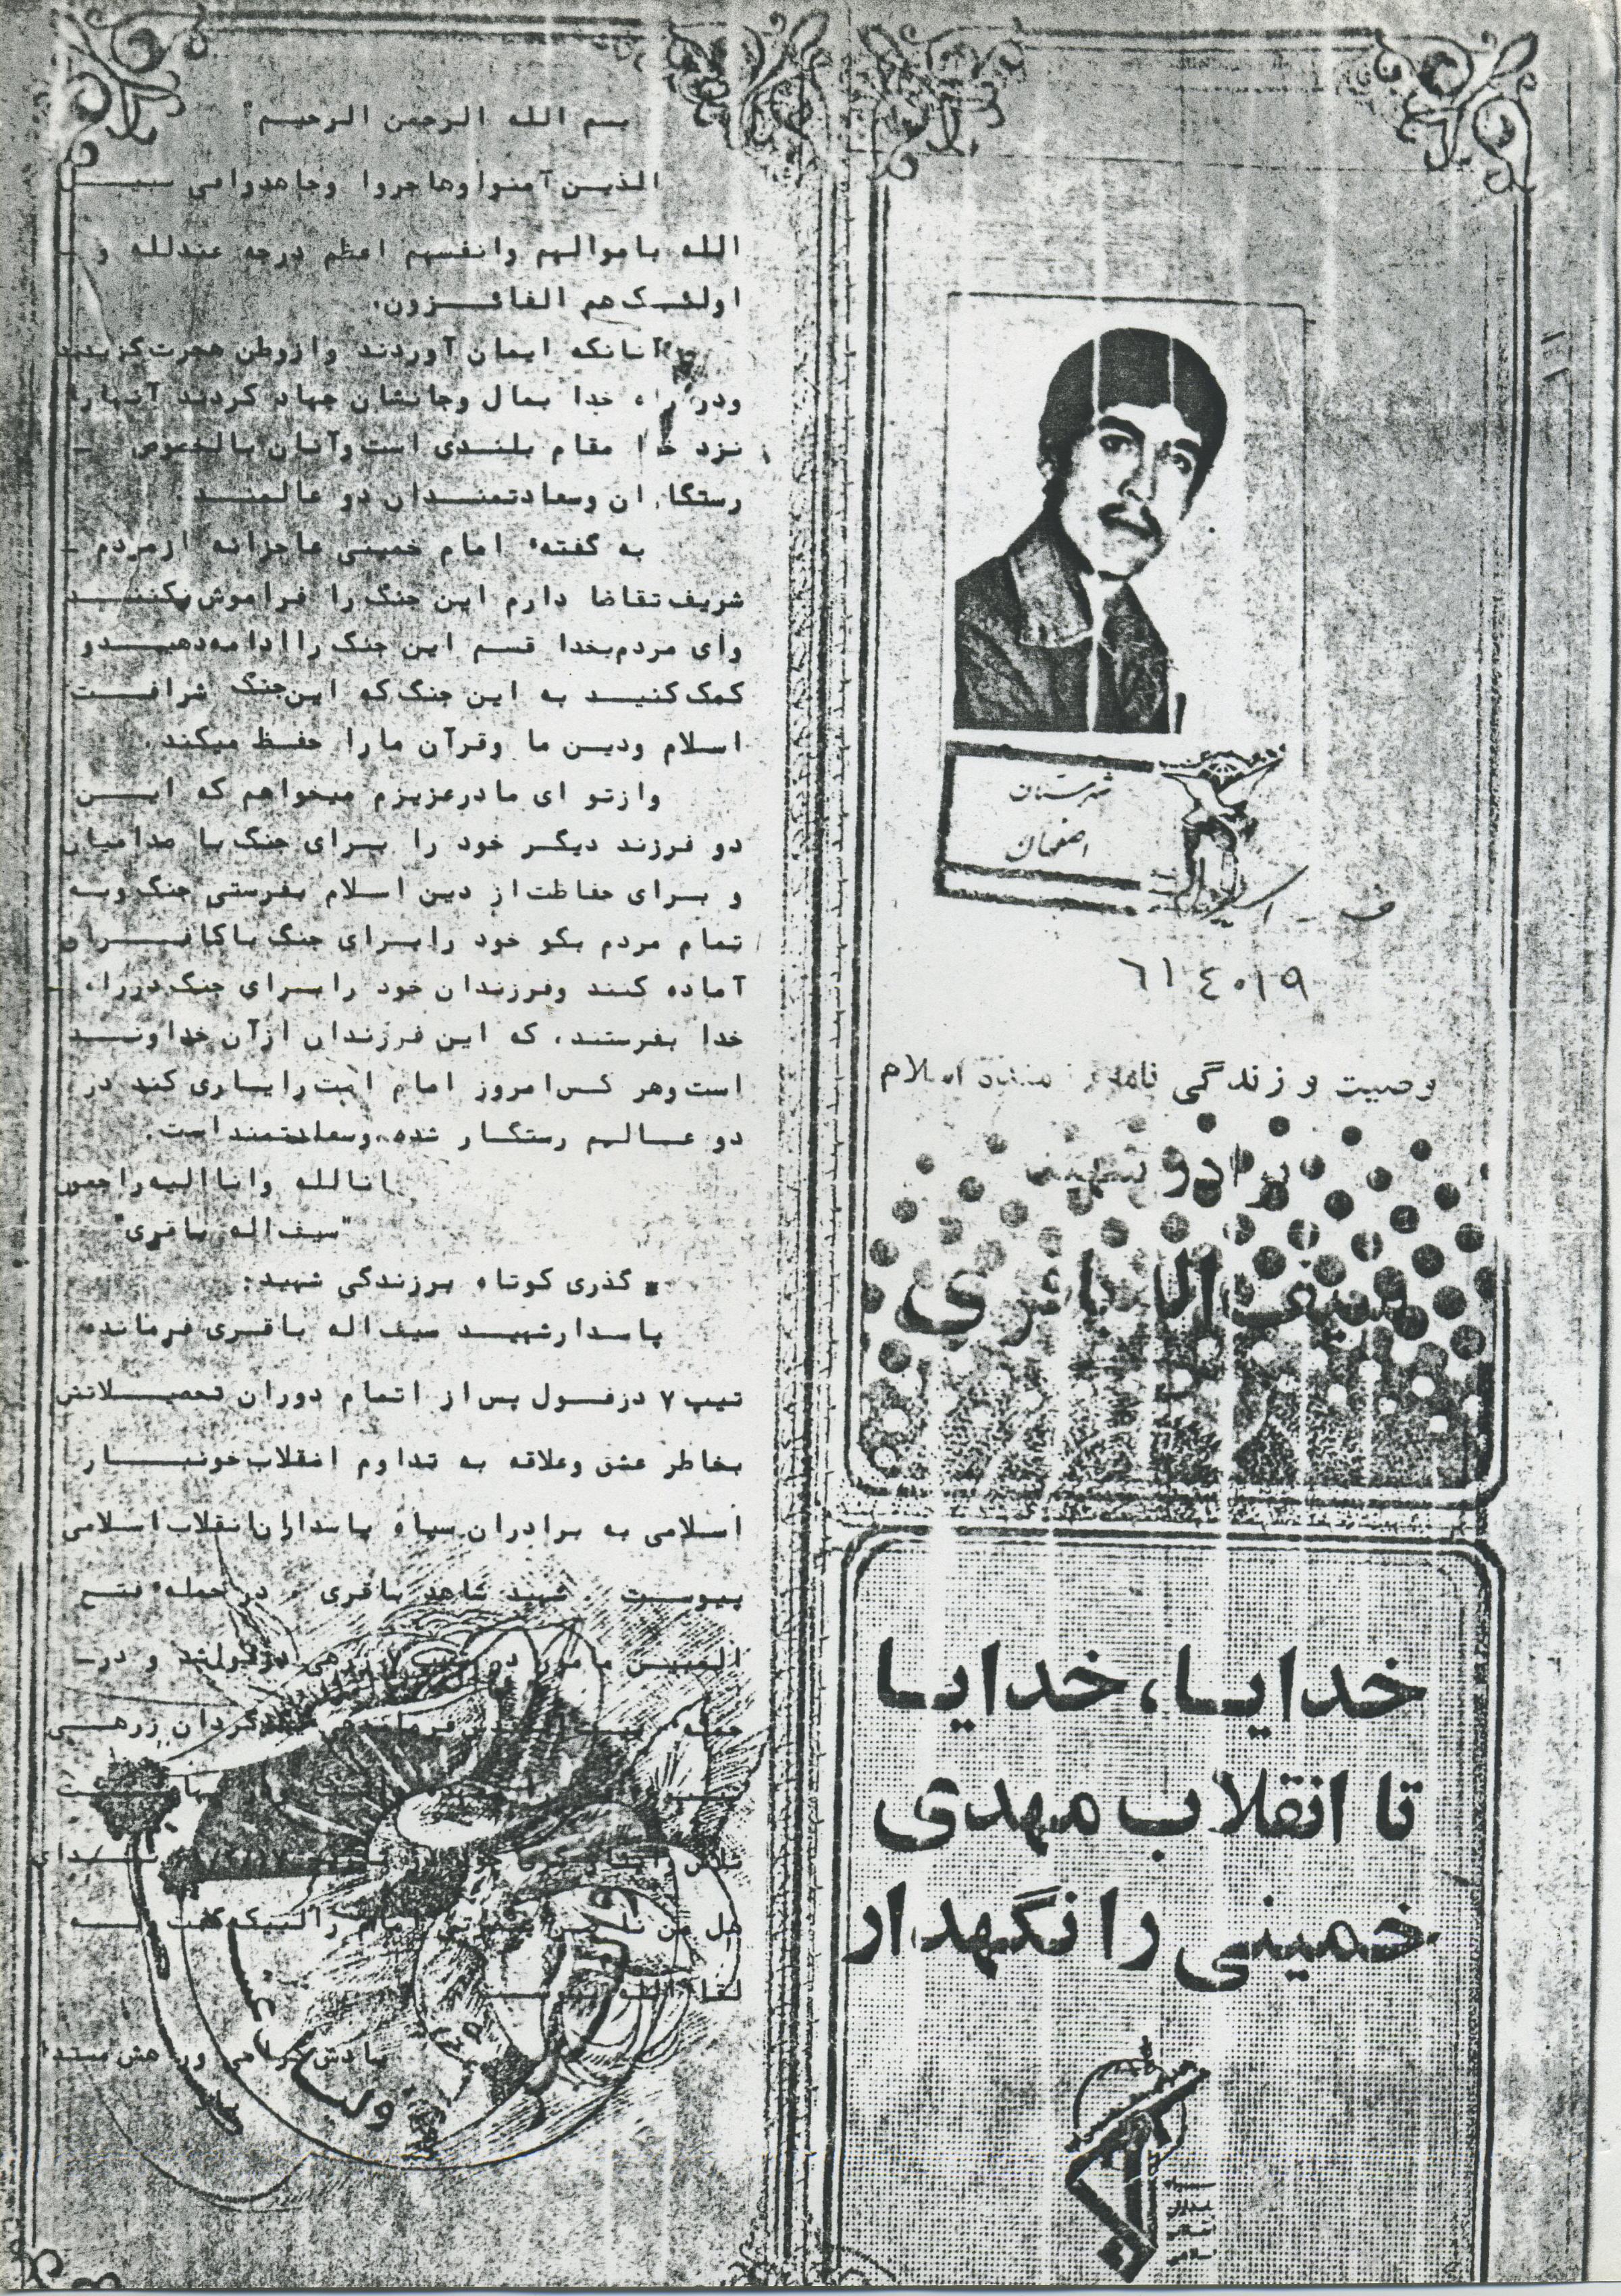 شهرستان
اصفهان
۶۱۴۰۱۹
وصیت و زندگی نامه اسلام
برادر شهید
سیف اله باقری
خدایا، خدایا
تا انقلاب مهدی
خمینی را نگهدار
بسم الله الرحمن الرحیم
الذین آمنوا وهاجروا وجاهدوا فی سبیل
الله باموالهم وانفسهم اعظم درجه عندلله و -
اولئک هم الفائزون.
آنانکه ایمان آوردند وازوطن هجرت گزیدند
ودر راه خدا بمال وجانشان جهاد کردند آنهارا
نزد خدا مقام بلندی است وآنان بالخصوص -
رستگاران وسعادتمندان دو عالمند.
به گفتهٔ امام خمینی عاجزانه ازمردم -
شریف تقاضا دارم این جنگ را فراموش نکنند
وای مردم بخدا قسم این جنگ را ادامه دهید و
کمک کنید به این جنگ که این جنگ شرافت
اسلام ودین ما وقرآن مارا حفظ میکند.
وازتو ای مادرعزیزم میخواهم که این
دو فرزند دیگر خود را برای جنگ با صدامیان
و برای حفاظت از دین اسلام بفرستی جنگ وبه
تمام مردم بگو خود رابرای جنگ باکافران
آماده کنند وفرزندان خود رابرای جنگ درراه -
خدا بفرستند، که این فرزندان ازآن خداوند
است وهر کس امروز امام امت رایاری کند در
دو عالم رستگار شده، وسعادتمند است.
انالله واناالیه راجعون
"سیف اله باقری"
گذری کوتاه برزندگی شهید:
پاسدارشهید سیف اله باقری فرمانده
تیپ ۷ دزفول پس از اتمام دوران تحصیلاتش
بخاطر عشق وعلاقه به تداوم انقلاب خونبار
اسلامی به برادران سپاه پاسداران انقلاب اسلامی
پیوست. شهید شاهد باقری در حملهٔ فتح
المبین مامور در تیپ ۷ زرهی دزفول شد و در-
فرماندهی گردان زرهی
هل من امام را لبیک گفت
لقاء الله
یادش گرامی وراهش